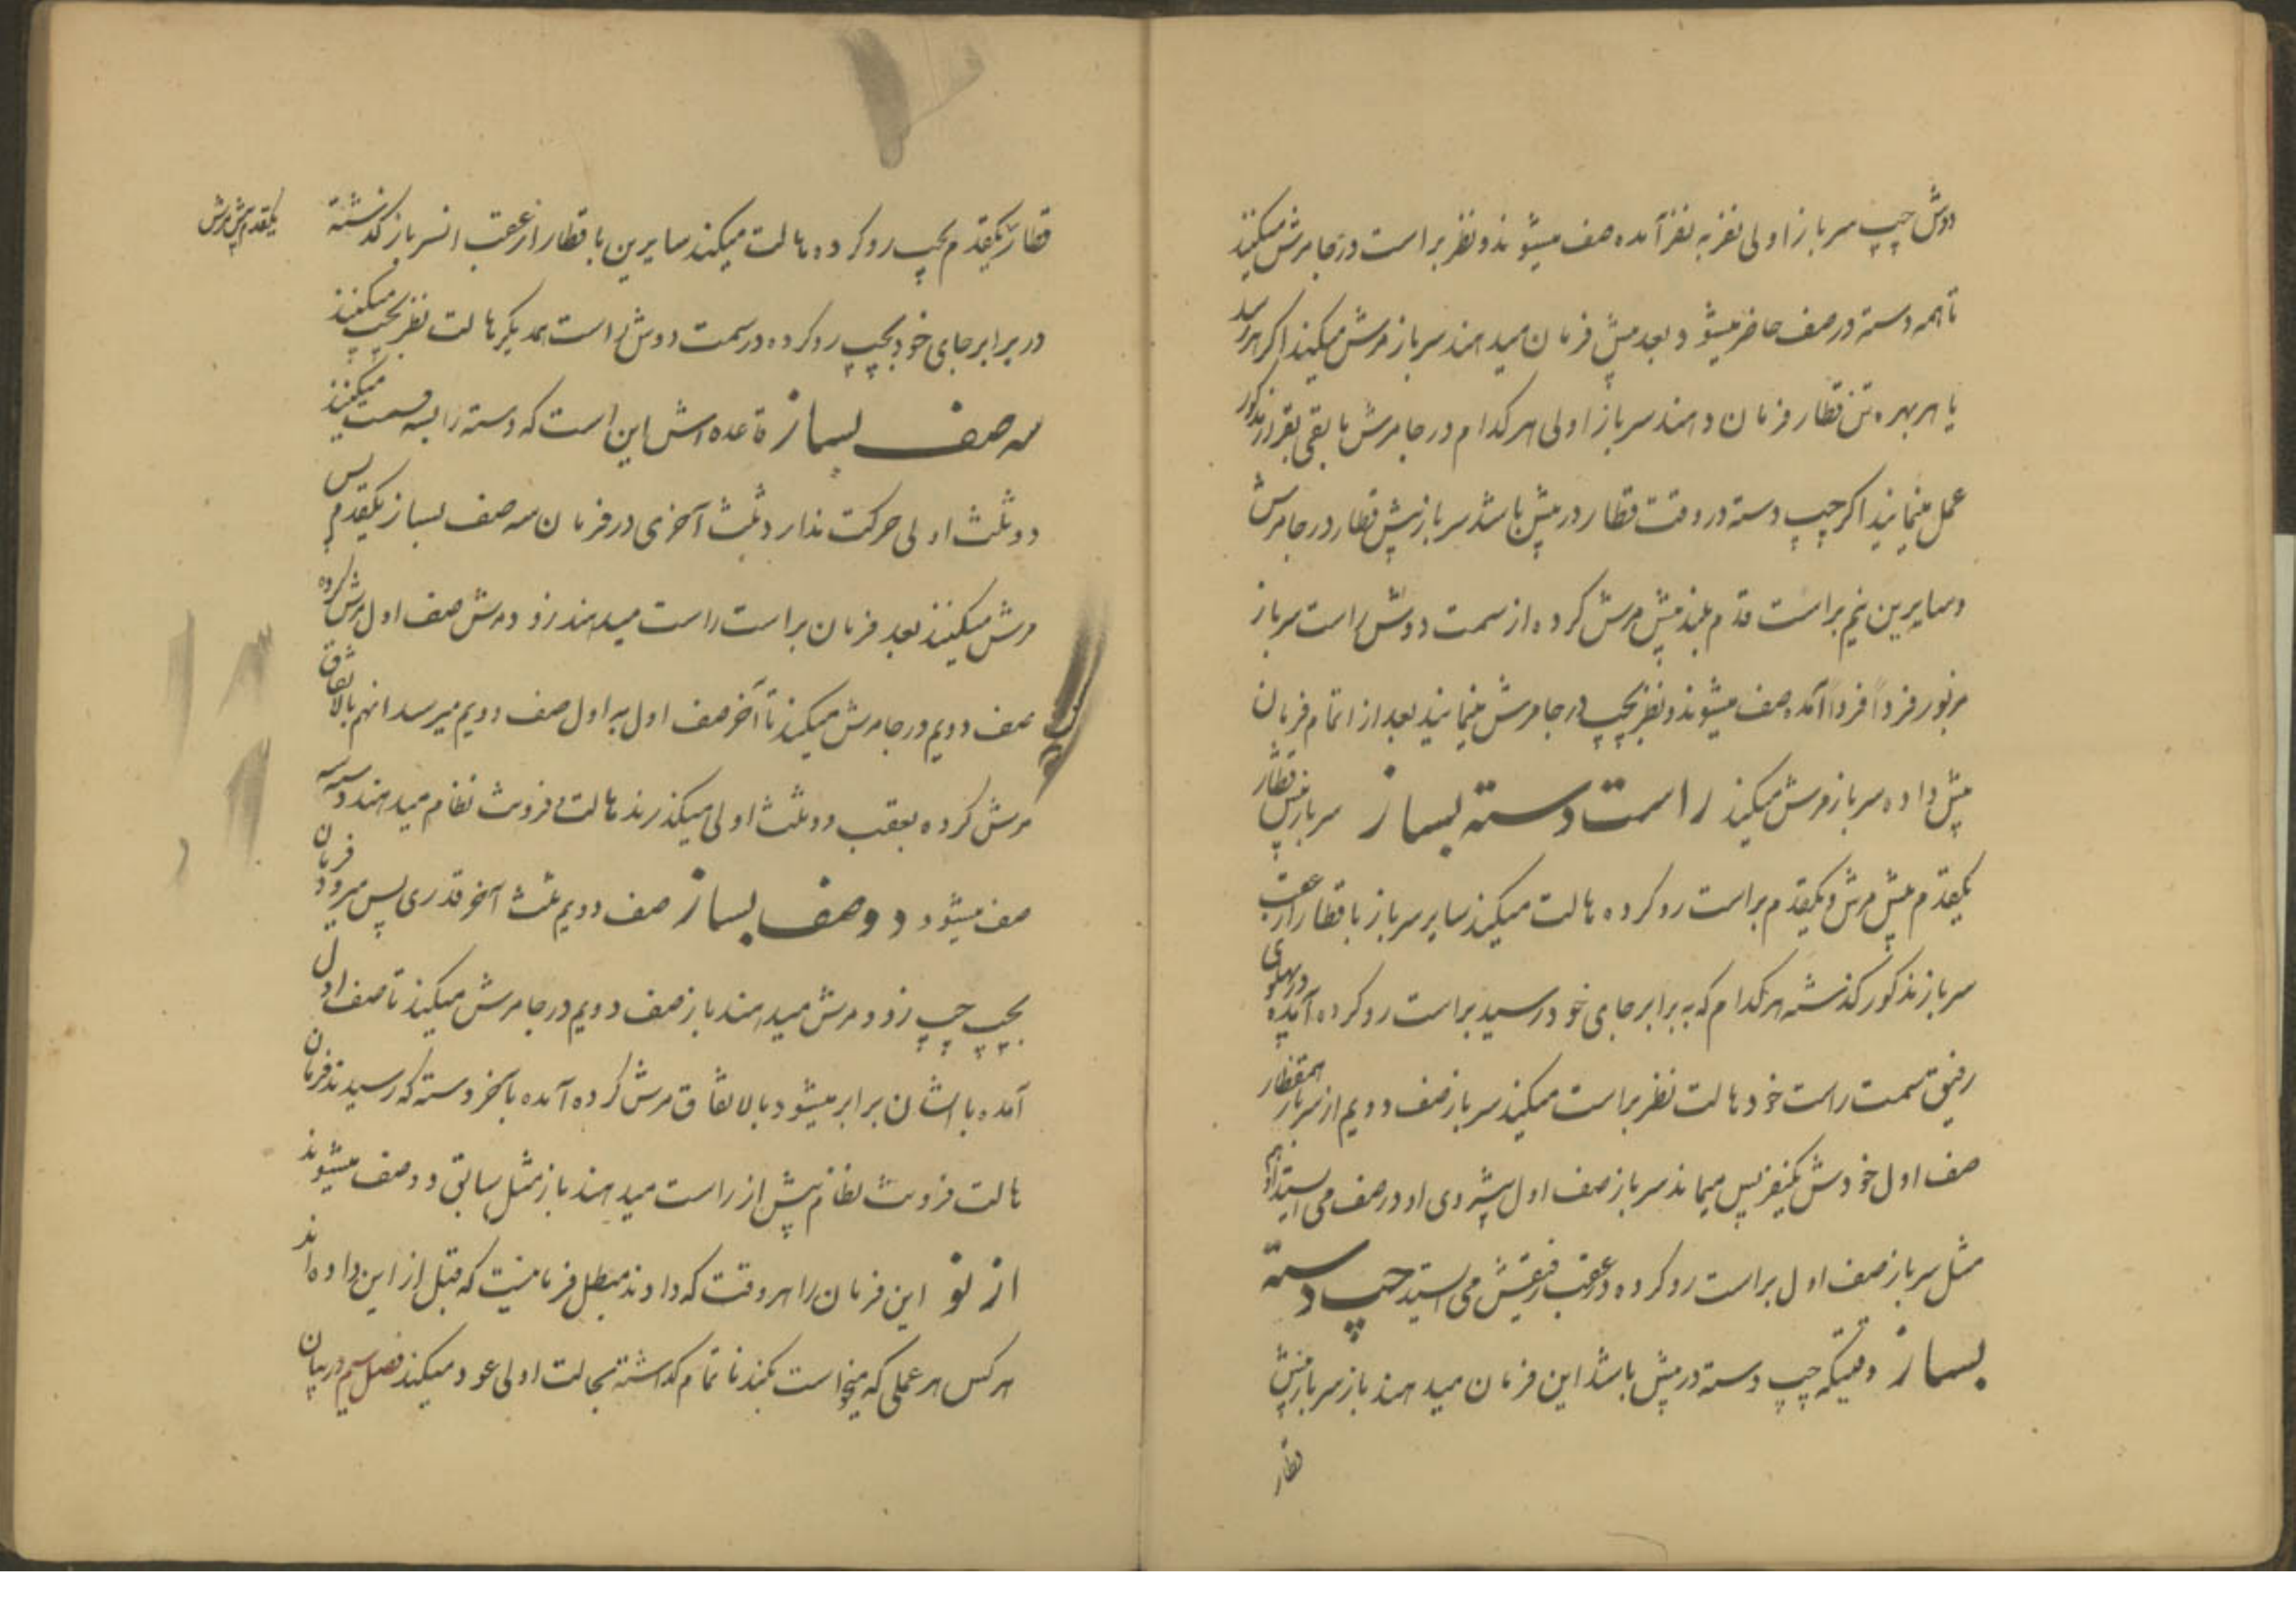 دوش چپ سرباز اولی نفر به نفر آمده صف میشوند و نظر براست در جا مرش میکنند
تا همه دسته در صف حاضر میشود بعد پیش فرمان میدهند سرباز مرش میکند اگر هر رسد
یا هر بهره تن قطار فرمان دهند سرباز اولی هر کدام در جا مرش مابقی بقرار مذکور
عمل مینمایند اگر چپ دسته در وقت قطار در پیش باشد سرباز پیش قطار در جا مرش
و سایرین نیم براست قدم بلند پیش مرش کرده از سمت دوش راست سرباز
مزبور فرداً فرداً آمده صف میشوند و نظر بچپ در جا مرش مینمایند بعد از اتمام فرمان
پیش داده سرباز مرش میکند راست دسته بساز سرباز پیش قطار
یکقدم پیش مرش و یکقدم براست رو کرده هالت میکند سایر سرباز با قطار از عقب
سرباز مذکور گذشته هر کدام که به برابر جای خود رسید براست رو کرده آمده در پهلوی
رفیق سمت راست خود هالت نظر براست میکند سرباز صف دویم از سرباز همقطار
صف اول خودش یکنفر پس میماند سرباز صف اول پیشروی او در صف می ایستد او هم
مثل سرباز صف اول براست رو کرده در عقب رفیقش می ایستد چپ دسته
بساز وقتیکه چپ دسته در پیش باشد این فرمان میدهند باز سرباز پیش
قطار
قطار یکقدم بچپ رو کرده هالت میکند سایرین با قطار از عقب انسرباز گذشته
یکقدم پیش مرش
در برابر جای خود بچپ رو کرده در سمت دوش راست همدیگر هالت نظر بچپ میکنند
سه صف بساز قاعده اش این است که دسته را بسه قسمت میکنند
دو ثلث اولی حرکت ندارد ثلث آخری در فرمان سه صف بساز یکقدم پس
مرش میکنند بعد فرمان براست راست میدهند زود مرش صف اول مرش کرده
صف دویم در جا مرش میکند تا آخر صف اول به اول صف دویم میرسد انهم بالاتفاق
مرش کرده بعقب دو ثلث اولی میگذرند هالت فرونت نظام میدهند دسته سه
صف میشود دو صف بساز صف دویم ثلث آخر قدری پس میرود فرمان
بچپ چپ زود مرش میدهند باز صف دویم در جا مرش میکند تا صف اول
آمده با ایشان برابر میشود بالاتفاق مرش کرده آمده بآخر دسته که رسیدند فرمان
هالت فرونت نظام پیش از راست میدهند باز مثل سابق دو صف میشوند
از نو این فرمان را هر وقت که دادند مبطل فرمانیست که قبل از این داده اند
هر کس هر عملی که میخواست بکند ناتمام گذاشته بحالت اولی عود میکند فصل سیم در بیان